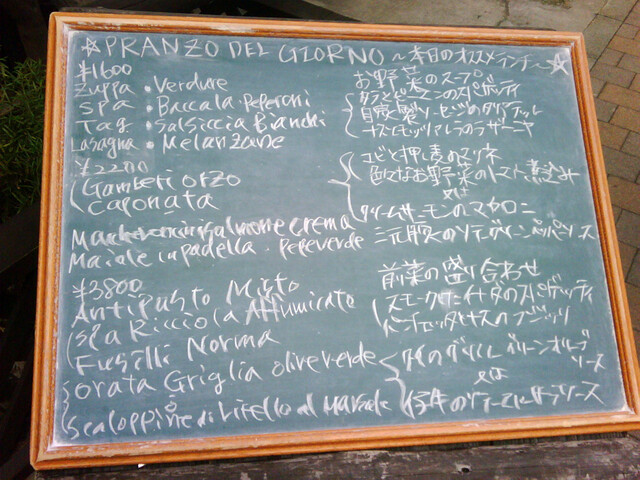 ☆PRANZO DEL GIORNO ～本日のオススメランチ～☆
¥1600
Zuppa・Verdure お野菜のスープ
Spa・Baccala Peperoni タラとピーマンのスパゲッティ
Tag・Salsiccia Bianchi 自家製ソーセージのタリアテッレ
Lasagna・Melanzane ナスとモッツァレラのラザーニャ
¥2200
Gamberi orzo エビと押し麦のマリネ
Caponata 色々なお野菜のトマト煮込み
又は
salmone Crema クリームサーモンのマカロニ
Maiale in padella・Pepe verde 三元豚のソテーグリーンペッパーソース
¥3800
Antipasto Misto 前菜の盛り合わせ
Spa Ricciola Affumicato スモークしたのスパゲッティ
Fusilli Norma リコッタとナスのフジッリ
Orata Griglia olive verde タイのグリルグリーンオリーブソース
又は
Scaloppine di Vitello al Marsala 仔牛のソテーマルサラソース